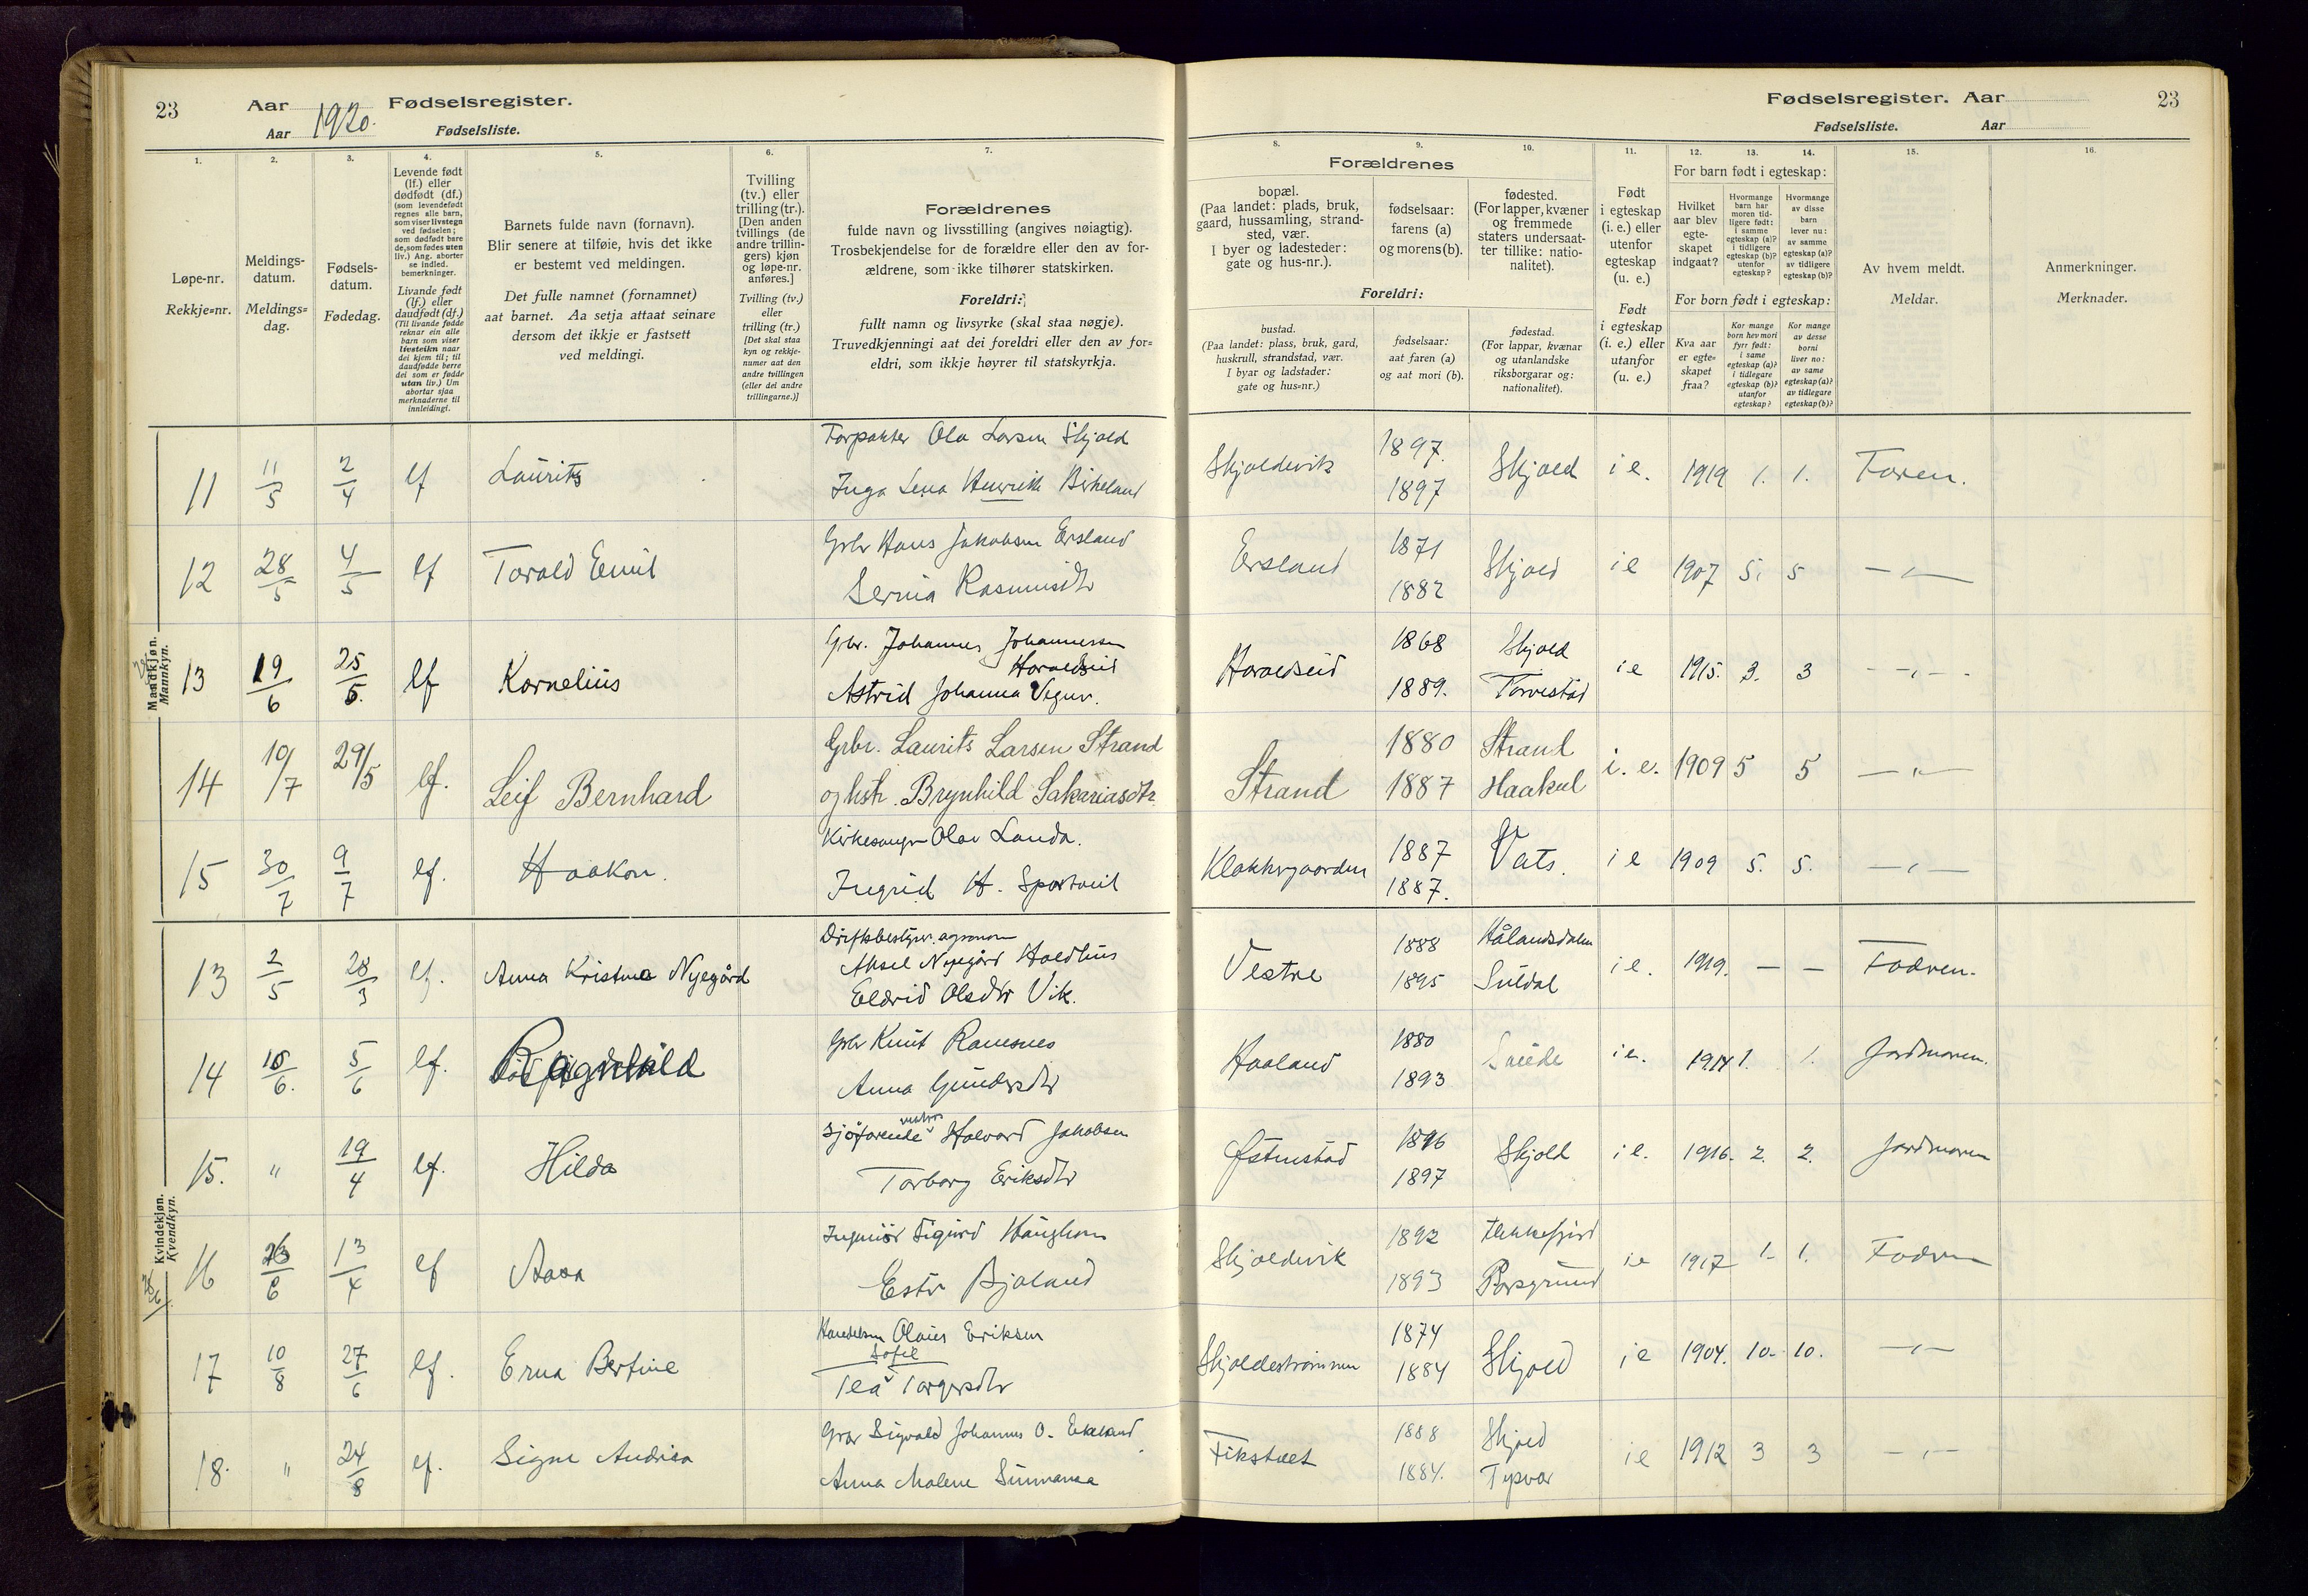 23
Aar
Fødselsregister.
Aar 1920.
Fødselsliste.
1.
2.
3.
4.
5.
6.
7.
Løpe-nr.
Rekkje=nr.
Meldings-
datum.
Meldings=
dag.
Fødsels-
datum.
Fødedag.
Levende født
(lf.) eller
dødfødt (df.)
(som levendefødt
regnes alle barn,
som viser livstegn
ved fødselen;
som dødfødt bare
de, som fødes uten
liv.) Ang. aborter
se indled.
bemerkninger.
Livande født
(lf.) eller
daudfødt (df.)
(Til livande fødde
reknar ein alle
barn som viser
livsteikn naar
dei kjem til; til
daudfødde berre
dei som er fødde
utan liv.) Um
abortar sjaa
merknaderne til
innleidingi.
Barnets fulde navn (fornavn).
Blir senere at tilføie, hvis det ikke
er bestemt ved meldingen.
Det fulle namnet (fornamnet)
aat barnet. Aa setja attaat seinare
dersom det ikkje er fastsett
ved meldingi.
Tvilling
(tv.) eller
trilling (tr.).
[Den anden
tvillings (de
andre trillin-
gers) kjøn
og løpe-nr.
anføres.]
Tvilling (tv.)
eller
trilling (tr.)
[Det skal staa
kyn og rekkje-
numer aat den
andre tvillingen
(eller dei andre
trillingarne.)]
Forældrenes
fulde navn og livsstilling (angives nøiagtig).
Trosbekjendelse for de forældre eller den av for-
ældrene, som ikke tilhører statskirken.
Foreldri:
fullt namn og livsyrke (skal staa nøgje).
Truvedkjenningi aat dei foreldri eller den av for=
eldri, som ikkje høyrer til statskyrkja.
Mandkjøn.
Mannkyn.
11 11/5 2/4 lf Laurits
Forpakter Ola Larsen Skjold
Inga Lena Henrikke Birkeland
12 28/5 4/5 lf Torald Emil
Grbr Hans Jakobsen Ersland
Serina Rasmusdtr
13 19/6 25/5. lf Kornelius
Gbr. Johannes Johannessen
Haraldseid
Astrid Johanna Vegnr.
14 10/7 29/5 lf. Leif Bernhard
Grbr. Laurits Larsen Strand
og hstr. Brynhild Sakariasdtr.
15 30/7 9/7 lf. Haakon.
Kirkesanger Olav Landa.
Ingrid H.
Kvindekjøn.
Kvendkyn.
13 2/5 28/3 lf. Anna Kristina Nyegård
Driftsbestyrer. agronom
Aksel Nyegård Holdhus
Eldrid Olsdtr Vik.
14 10/6. 5/6 lf. Ragnhild
Grbr Knut Ramsnes
Anna Gundersdtr
15. " 19/4 lf. Hilda
Sjöfarende Halvard Jakobsen
Torborg Eriksdtr
16 23/6 13/4 lf Aasa
Ingeniör Sigurd Haughom
Ester Bjaland
17 10/8 27/6 lf. Erna Bertine
Handelsm Olaus Eriksen
Sofie
Tea Torgersdtr
18. " 24/8 lf. Signe Andrea
Grbr Sigvald Johannes O. Ekeland
Anna Malene Sunnanaa
Fødselsregister. Aar
23
Fødselsliste.
Aar
8.
9.
10.
11.
12.
13.
14.
15.
16.
Forældrenes
bopæl.
(Paa landet: plads, bruk,
gaard, hussamling, strand-
sted, vær.
I byer og ladesteder:
gate og hus-nr.).
fødselsaar:
farens (a)
og morens (b).
fødested.
(For lapper, kvæner
og fremmede
staters undersaat-
ter tillike: natio-
nalitet).
Foreldri:
bustad.
(Paa landet: plass, bruk, gard,
huskrull, strandstad, vær.
I byar og ladstader:
gate og hus=nr.)
fødselsaar:
aat faren (a)
og aat mori (b).
fødestad.
(For lappar, kvænar
og utanlandske
riksborgarar og:
nationalitet).
Født
i egteskap
(i. e.) eller
utenfor
egteskap
(u. e.)
Født
i egteskap
(i. e.) eller
utanfor
(u. e.)
For barn født i egteskap:
Hvilket
aar blev
egte-
skapet
indgaat?
Hvormange
barn har
moren tid-
ligere født:
i samme
egteskap (a)?
i tidligere
egteskap (b)?
utenfor
egteskap?
Hvormange
av disse
barn
lever nu:
av samme
egteskap (a)?
av tidligere
egteskap (b)?
For born født i egteskap:
Kva aar
er egte=
skapet
fraa?
Kor mange
born hev mori
fyrr født:
i same
egteskap (a)?
i tidlegare
egteskap (b)?
utanfor
egteskap?
Kor mange
av desse
borni
liver no:
av same
egteskap (a)?
av tidlegare
egteskap (b)?
Av hvem meldt.
Meldar.
Anmerkninger.
Merknader.
Skjoldevik 1897. 1897 Skjold i e. 1919 1. 1. Faren.
Ersland 1871 1882 Skjold i e 1907 5. 5 — " —
Haraldseid 1868 1889. Skjold Torvestad i e 1915. 3. 3 — " —
Strand 1880 1887 Strand i. e. 1909 5 5 — " —
Klokkergaarden 1887 1887. Vats. i e 1909 5. 5. — " —
Vestre 1888 1895 Hålandsdalen Suldal i e. 1919. — — Fadren.
Haaland 1880 1893 Saude i e. 1914 1. 1. Jordmoren.
Østenstad 1896 1897 Skjold i e. 1916. 2. 2. Jordmoren
Skjoldevik 1892 1893 Flekkefjord Porsgrund i e 1917 1. 1. Fadren
Skjoldestraumen 1874 1884 Skjold i e 1904. 10. 10. — " —
Fikstveit 1888 1884. Skjold Tysvær i e 1912 3 3 — " —